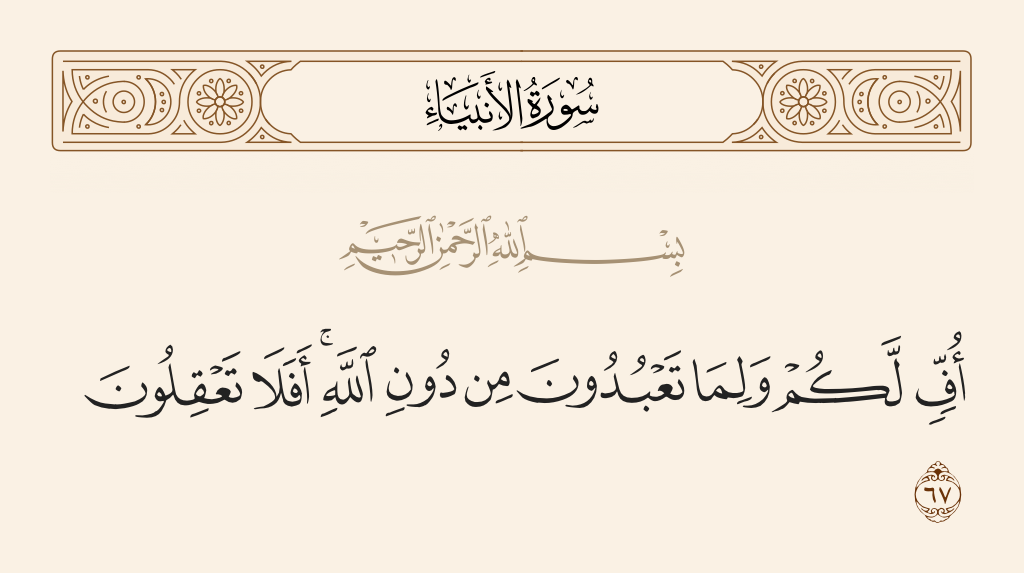 سُورَةُ الأَنبِيَاءِ
بِسْمِ ٱللَّهِ ٱلرَّحْمَٰنِ ٱلرَّحِيمِ
أُفٍّ لَّكُمْ وَلِمَا تَعْبُدُونَ مِن دُونِ ٱللَّهِ ۚ أَفَلَا تَعْقِلُونَ
٦٧